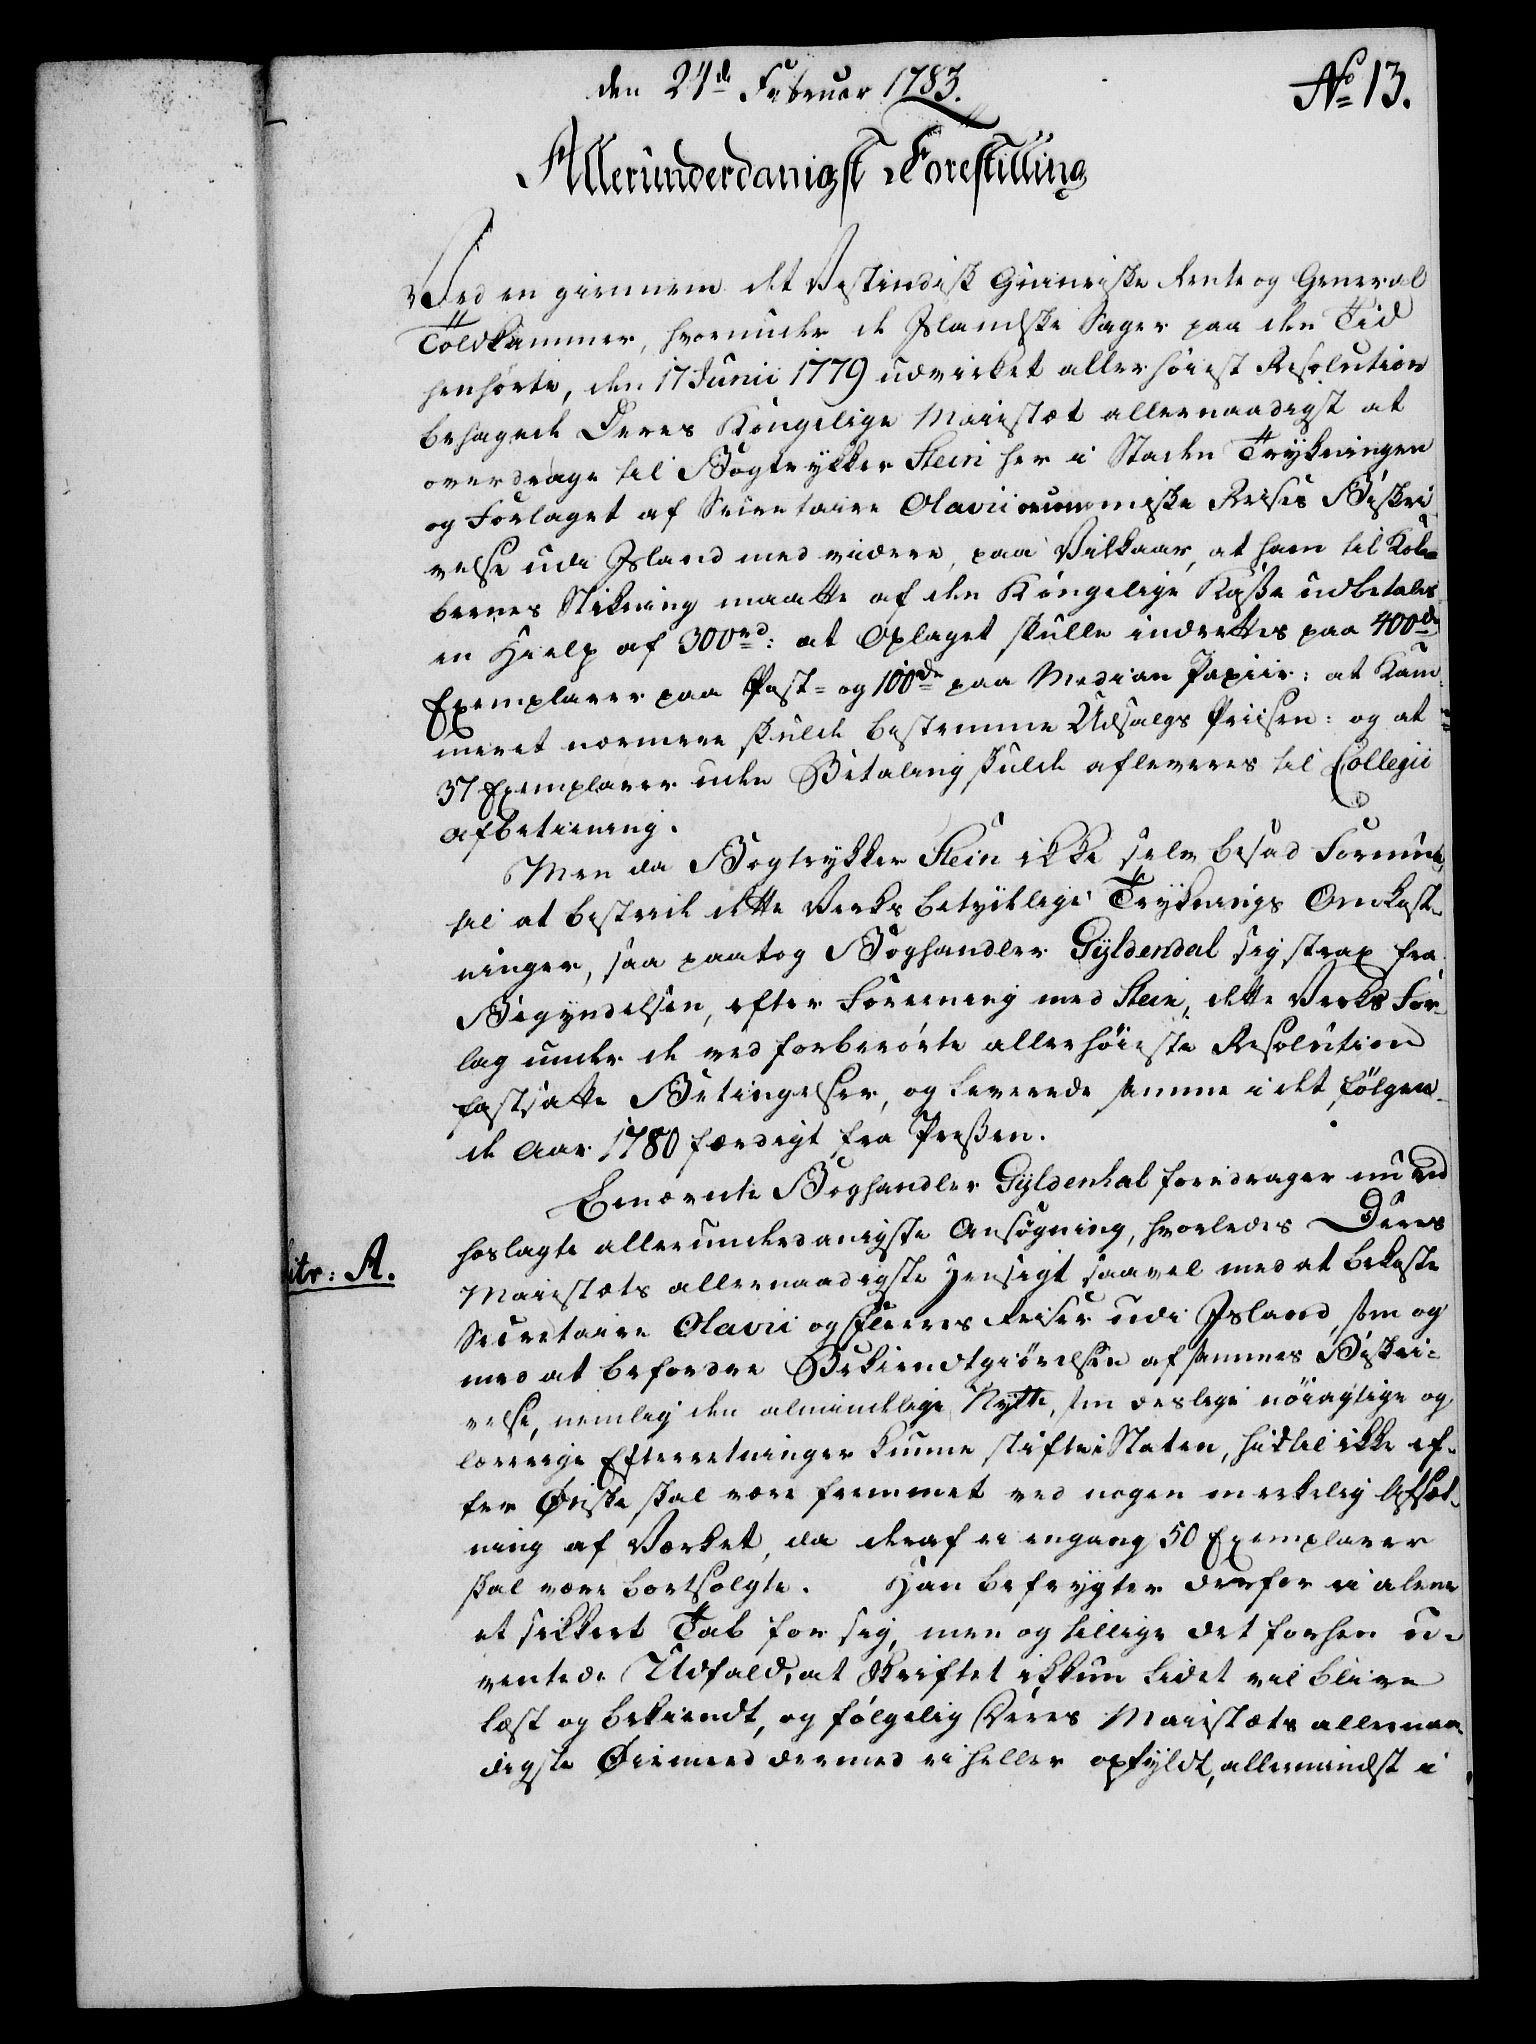 den 24de Februar 1783.
No 13.
Allerunderdanigst Forestilling
Ved en giennem det Vestindisk Guineiske Rente og General
Toldkammer, hvorunder de Islandske Sager paa den Tid
henhörte, den 17 Junii 1779 udvirket allerhöiest Resolution
behagede Deres Kongelige Maiestæt allernaadigst at
overdrage til Bogtrykker Stein her i Staden Trykningen
og Forlaget af Secretaire Olavii oeconomiske Reises Beskri-
velse udi Island med videre, paa Vilkaar, at ham til Kob-
bernes Stikning maatte af den Kongelige Kasse udbetales
en Hielp af 300rd: at Oplaget skulle indrettes paa 400de
Exemplarer paa Post- og 100de paa Median Papiir: at Kam-
meret nærmere skulde bestemme Udsalgs Priisen: og at
37 Exemplarer uden Betaling skulde afleveres til Collegii
afbetiening.
Men da Bogtrykker Stein ikke selv besad Formue
til at bestride dette Verks betydelige Tryknings Omkost-
ninger, saa paatog Boghandler Gyldendal sig strax fra
Begyndelsen, efter Foreening med Stein, dette Verks For-
lag under de ved forberörte allerhöieste Resolution
fastsatte Betingelser, og leverede samme i det fölgen-
de Aar 1780 færdigt fra Pressen.
Bemeldte Boghandler Gyldendal foredrager nu ved
Litr: A.
hoslagte allerunderdanigste Ansögning, hvorledes Deres
Maiestæts allernaadigste Hensigt saavel med at bekoste
Secretaire Olavii og fleeres Reiser udi Island, som og
med at befordre Bekiendtgiörelsen af sammes Beskri-
velse, nemlig den almindelige Nytte, som deslige nöiagtige og
lærerige Efterretninger kunne stifte i Staten, hidtil ikke ef-
ter Önske skal være fremmet ved nogen merkelig Afsæt-
ning af Værket, da deraf ei engang 50 Exemplarer
skal være bortsolgte. Han befrygter derfor ei alene
et sikkert Tab for sig, men og tillige det forhen u-
ventede Udfald, at Skriftet ikkun lidet vil blive
læst og bekiendt, og fölgelig Deres Maiestæts allernaa-
digste Öiemeed dermed ei heller opfyldt, allermindst i